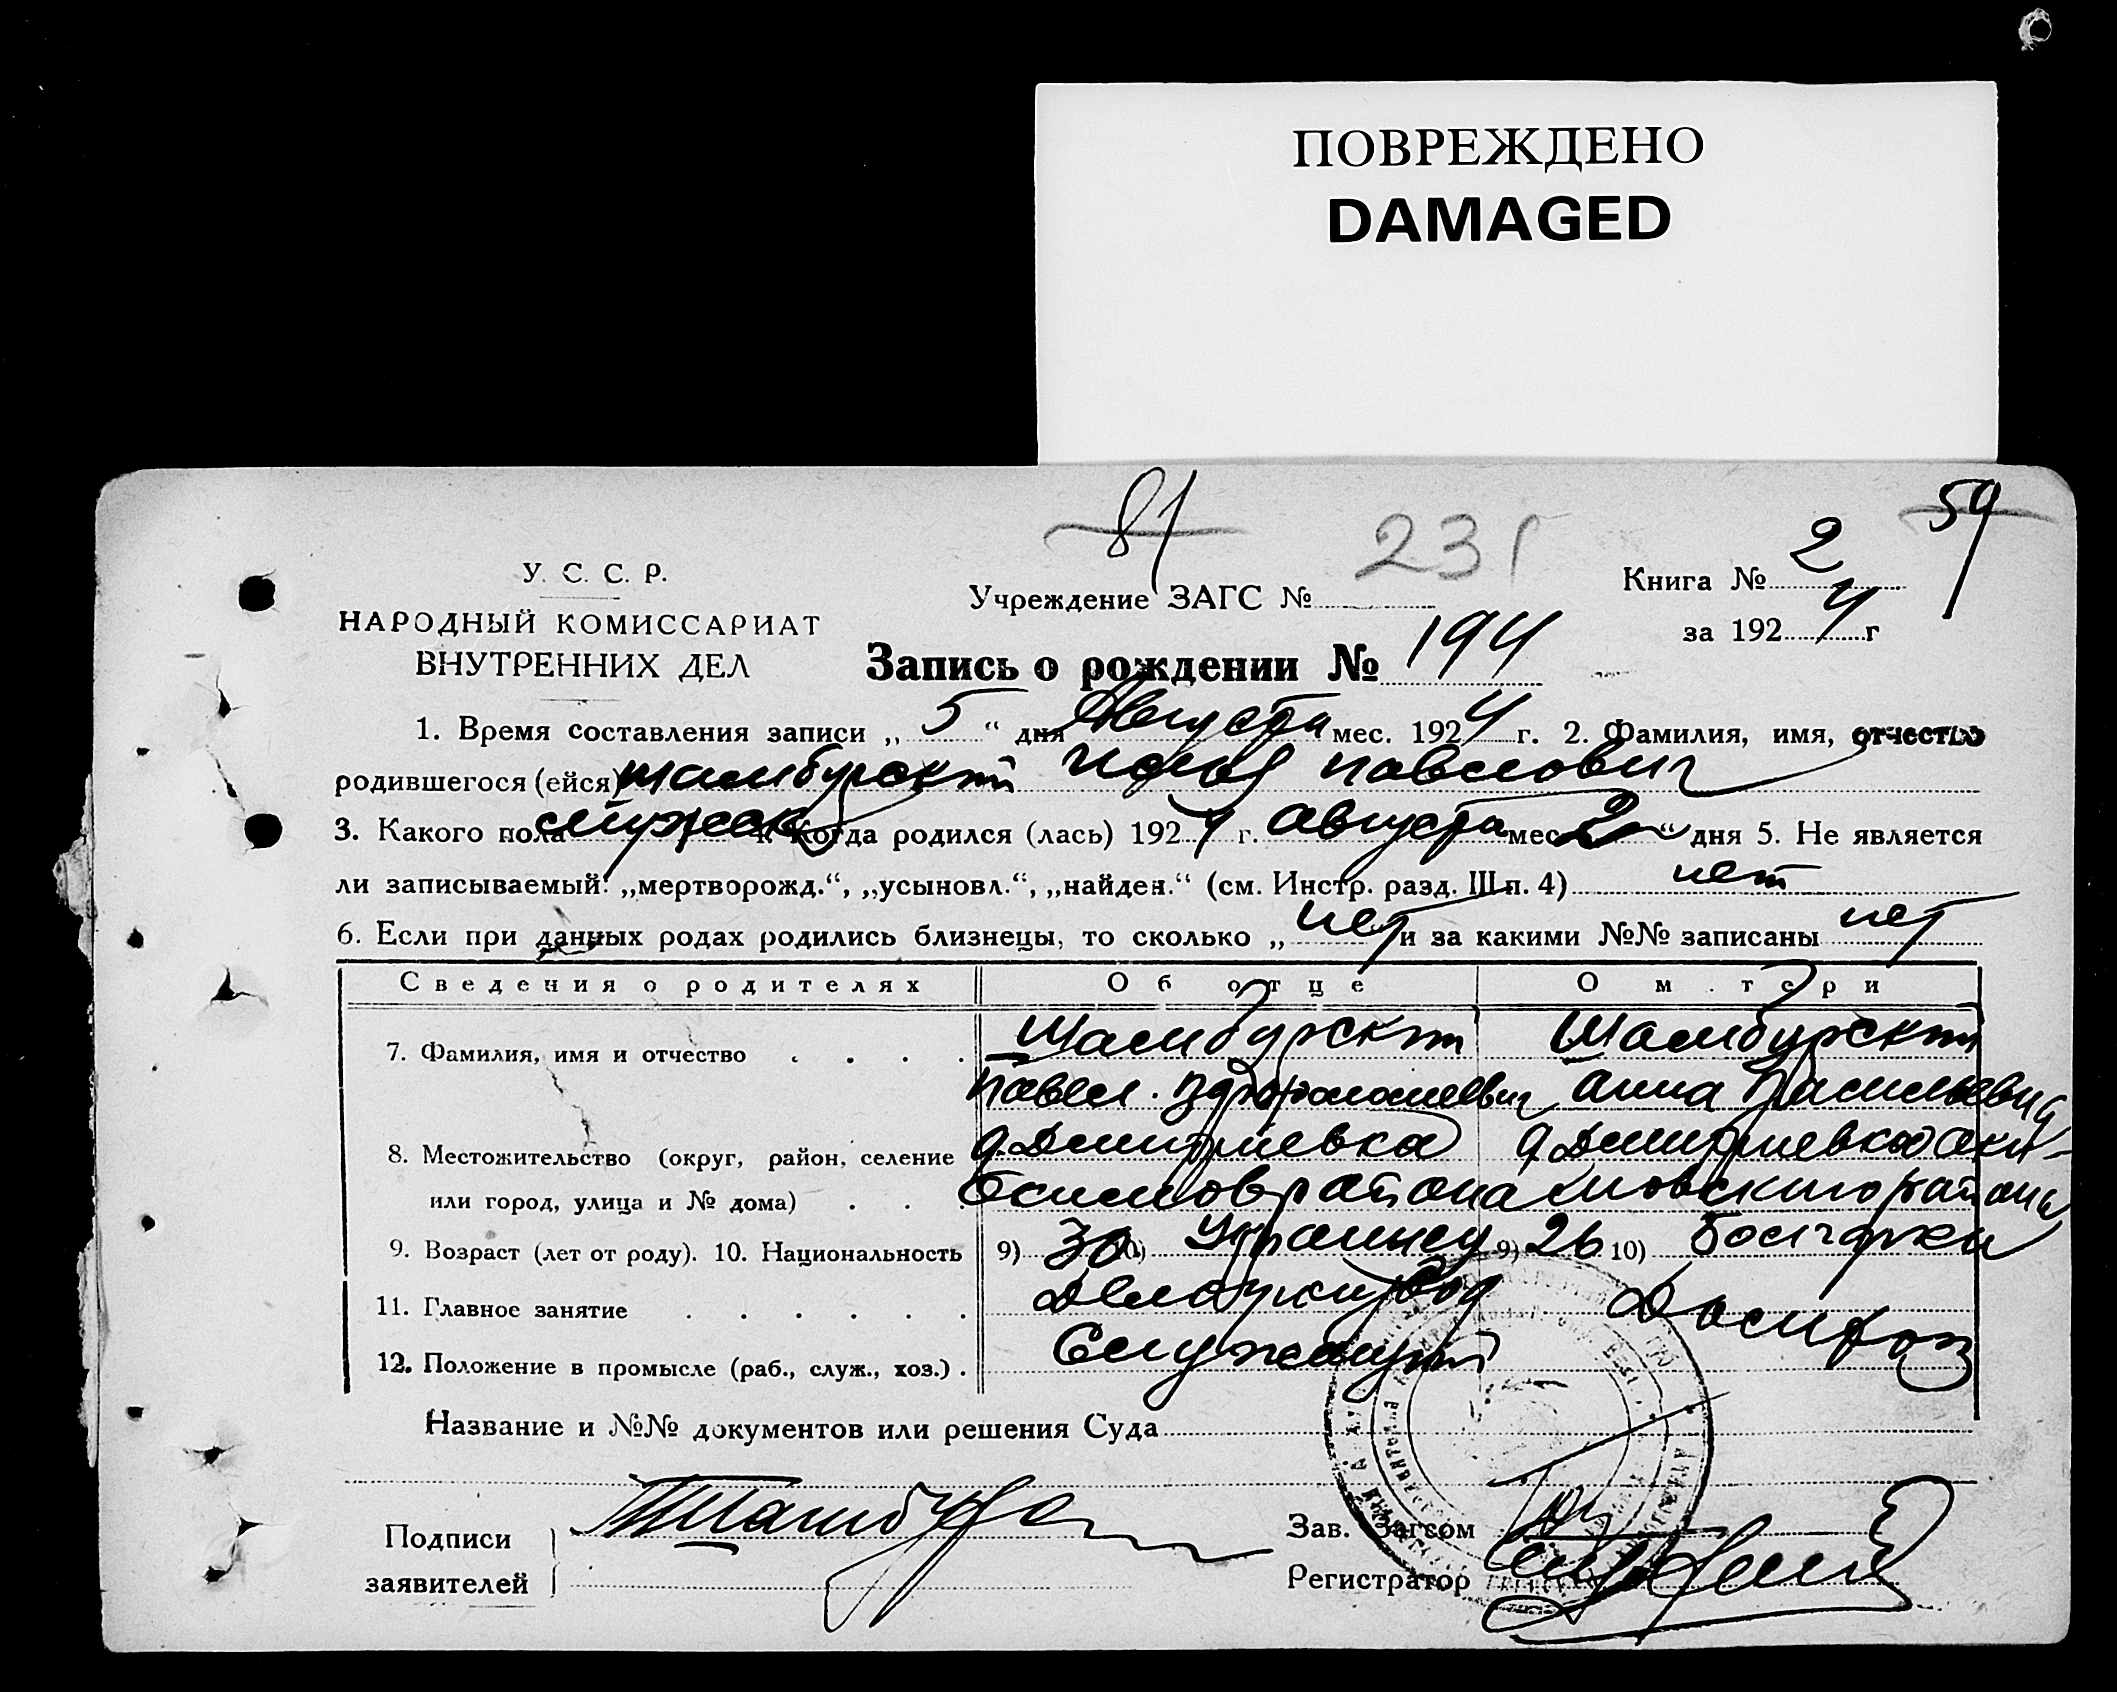 ПОВРЕЖДЕНО
DAMAGED
81
59
231
У. С. С. Р.
НАРОДНЫЙ КОМИССАРИАТ
ВНУТРЕННИХ ДЕЛ
Учреждение ЗАГС №
Книга № 2
за 1924 г
Запись о рождении № 194
1. Время составления записи „ 5 “ дня Августа мес. 1924 г. 2. Фамилия, имя, отчество
родившегося (ейся) Шамбурский Павлович
3. Какого пола мужск 4. Когда родился (лась) 1924 г. августа мес 2 “ дня 5. Не является
ли записываемый: „мертворожд.“, „усыновл.“, „найден.“ (см. Инстр. разд. III п. 4) нет
6. Если при данных родах родились близнецы, то сколько „ нет и за какими №№ записаны нет
Сведения о родителях Об отце О м.тери
7. Фамилия, имя и отчество Шамбурский Шамбурский
Павел Анна Васильевна
8. Местожительство (округ, район, селение д. Дмитриевка д. Дмитриевка Аки-
или город, улица и № дома) района мовского района
9. Возраст (лет от роду). 10. Национальность 9) 30 10) Украинец 9) 26 10) Болгарки
11. Главное занятие Делопроизвод Домхоз
12. Положение в промысле (раб., служ., хоз.) Служащий
Название и №№ документов или решения Суда
Подписи
заявителей
Шамбур
Зав. Загсом
Регистратор